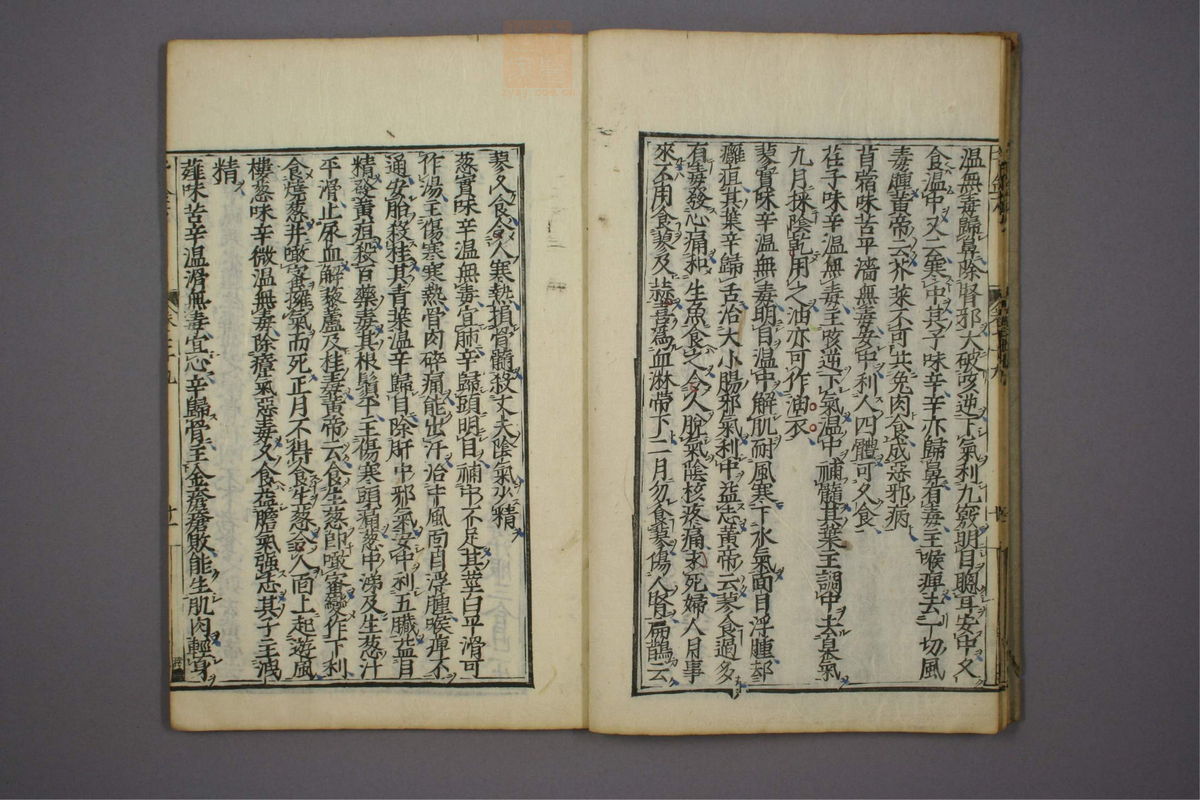 溫無毒歸鼻除腎邪大破咳逆下氣利九竅明目聰耳安中久
食溫中又云寒中其子味辛辛亦歸鼻有毒主喉痺去一切風
毒腫黃帝云芥菜不可共兔肉食成惡邪病
苜蓿味苦平濇無毒安中利人四體可久食
荏子味辛溫無毒主咳逆下氣溫中補髓其葉主調中去臭氣
九月採陰乾用之油亦可作油衣
蓼實味辛溫無毒明目溫中解肌耐風寒下水氣面目浮腫却
癰疽其葉辛歸舌治大小腸邪氣利中益志黃帝云蓼食過多
有毒發心痛和生魚食之令人脫氣陰核疼痛求死婦人月事
來不用食蓼及蒜喜為血淋帶下二月勿食蓼傷人腎扁鵲云
蓼久食令人寒熱損骨髓殺丈夫陰氣少精
葱實味辛溫無毒宜肺辛歸頭明目補中不足其莖白平滑可
作湯主傷寒寒熱骨肉碎痛能出汗治中風面目浮腫喉痺不
通安胎殺桂其青葉溫辛歸目除肝中邪氣安中利五臟益目
精發黃疸殺百藥毒其根鬚平主傷寒頭痛葱中涕及生葱汁
平滑止尿血解藜蘆及桂毒黃帝云食生葱即噉蜜變作下利
食燒葱并噉蜜擁氣而死正月不得食生葱令人面上起遊風
樓葱味辛微溫無毒除瘴氣惡毒久食益膽氣強志其子主洩
精
薤味苦辛溫滑無毒宜心辛歸骨主金瘡瘡敗能生肌肉輕身